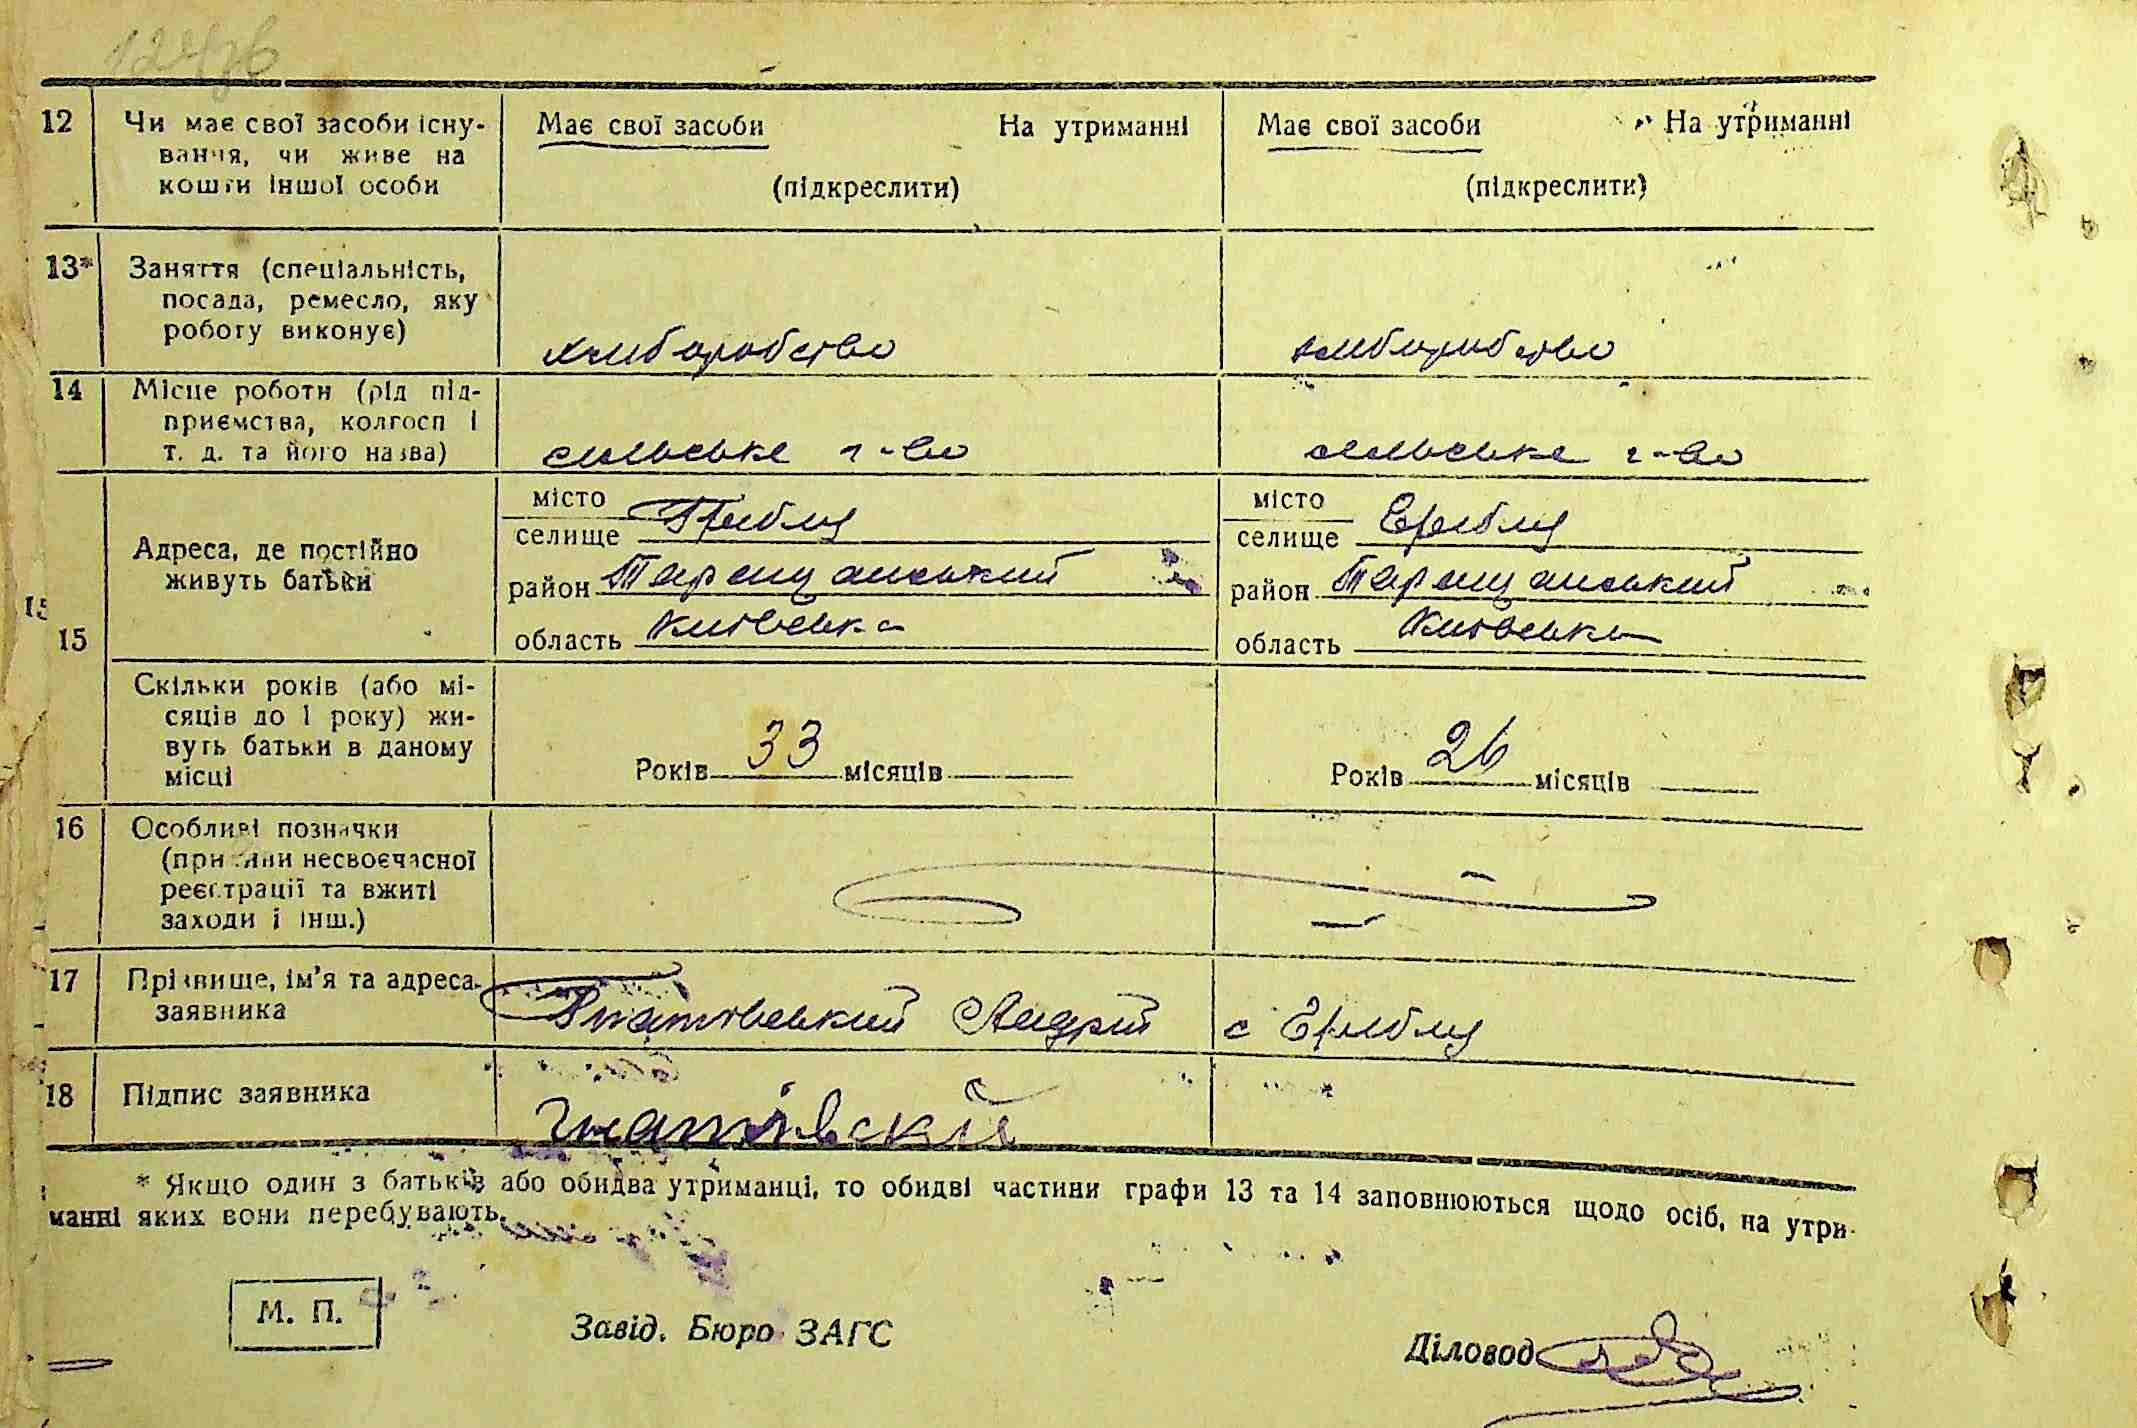 12
Чи має свої засоби існу-
вання, чи живе на
кошти іншої особи
Має свої засоби На утриманні
(підкреслити)
Має свої засоби На утриманні
(підкреслити)
13*
Заняття (спеціальність,
посада, ремесло, яку
роботу виконує)
хлиборобство
хлиборобство
14
Місце роботи (рід під-
приємства, колгосп і
т. д. та його назва)
сельське г-во
сельське г-во
15
Адреса, де постійно
живуть батьки
місто
селище
район Таращанський
область Київська
місто
селище
район Таращанський
область Київська
Скільки років (або мі-
сяців до 1 року) жи-
вуть батьки в даному
місці
Років 33 місяців
Років 26 місяців
16
Особливі позначки
(причини несвоєчасної
реєстрації та вжиті
заходи і інш.)
17
Прізвище, ім'я та адреса
заявника
Гнатовський Андрій с
18
Підпис заявника
Гнатовский
* Якщо один з батьків або обидва утриманці, то обидві частини графи 13 та 14 заповнюються щодо осіб, на утри-
манні яких вони перебувають.
М. П.
Завід. Бюро ЗАГС
Діловод